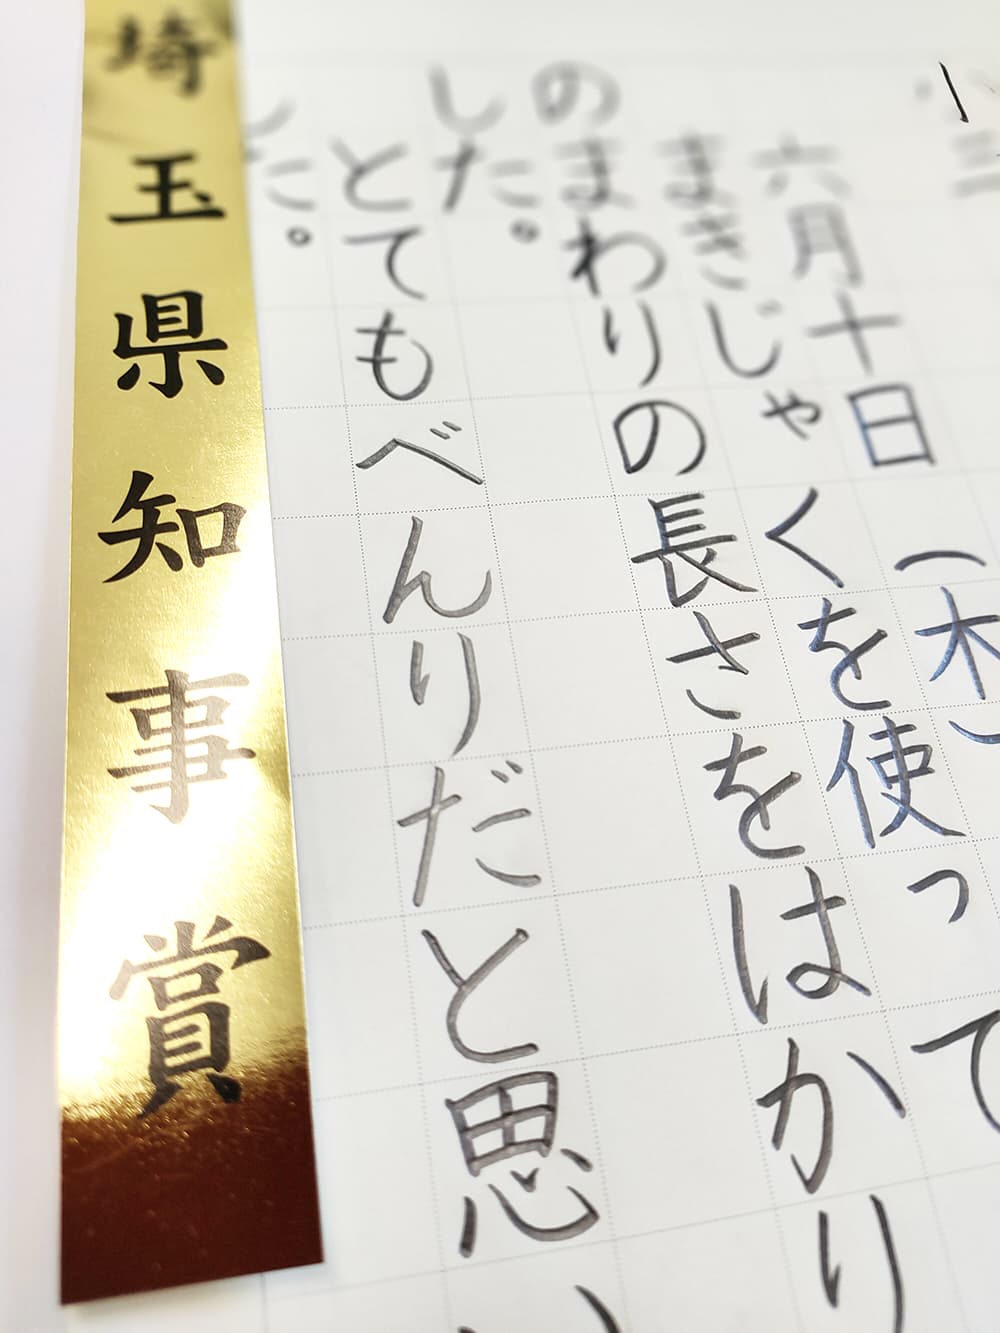 三
六月十日(木)
まきじゃくを使って
のまわりの長さをはかり
した。
とてもべんりだと思い
した。
埼玉県知事賞